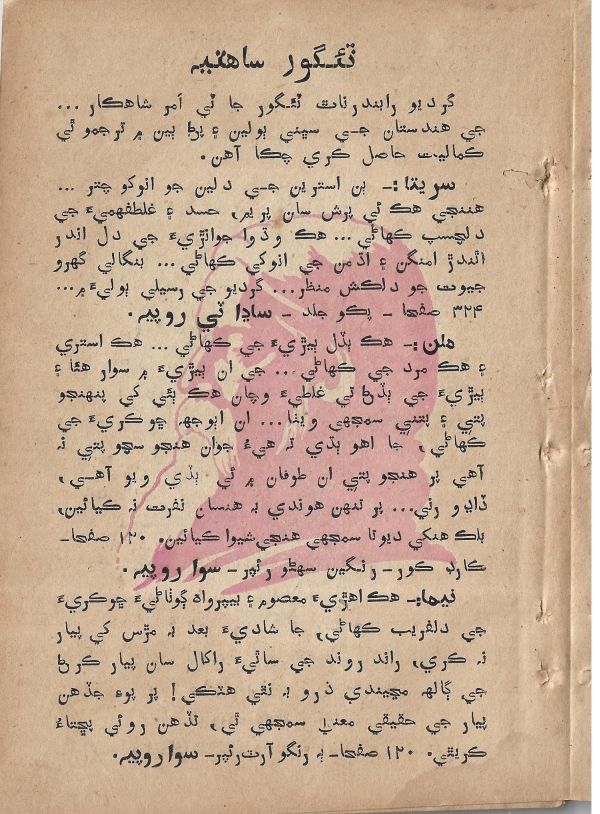 ٽئگور ساهتيه
گرديو رابندرناٿ ٽئگور جا ٽي اَمر شاهڪار ...
جي هندستان جي سڀني ٻولين ۽ پرڻ ٻين ۾ ترجمو ٿي
ڪماليت حاصل ڪري چڪا آهن.
سريتا :- ٻن استرين جي دلين جو انوکو چتر ...
هننجي هڪ ئي پرش سان پريم, حسد ۽ غلطفهميءَ جي
دلچسپ ڪهاڻي... هڪ وڌوا جوانڙيءَ جي دل اندر
اٿندڙ امنگن ۽ اڌمن جي انوکي ڪهاڻي... بنگالي گهرو
جيوت جو دلڪش منظر... گرديو جي رسيلي ٻوليءَ ۾...
۳۲۴ صفحا - پڪو جلد - ساڍا ٽي روپيه.
ملن :- هڪ ٻڏل ٻيڙيءَ جي ڪهاڻي ... هڪ استري
۽ هڪ مرد جي ڪهاڻي ... جي ان ٻيڙيءَ ۾ سوار هئا ۽
ٻيڙيءَ جي ٻڏڻ تي غلطيءَ وچان هڪ ٻئي کي پنهنجو
پتي ۽ پتني سمجهي ويٺا... ان اٻوجهہ ڇوڪريءَ جي
ڪهاڻي, جا اهو ٻڌي تہ هيءُ جوان هنجو سچو پتي نہ
آهي پر هنجو پتي ان طوفان ۾ ئي ٻڏي ويو آهي,
ڏاڍو رني... پر تنهن هوندي بہ هنسان نفرت نہ ڪيائين,
بلڪ هنکي ديوتا سمجهي هنجي شيوا ڪيائين. ۱۲۰ صفحا-
ڪارڊ ڪور - رنگين سهڻو رئپر - سوا روپيه.
نيما:- هڪ اهڙيءَ معصوم ۽ بيپرواه ڳوٺاڻيءَ ڇوڪريءَ
جي دلفريب ڪهاڻي, جا شاديءَ بعد بہ مڙس کي پيار
نہ ڪري, راند روند جي ساٿيءَ راکال سان پيار ڪرڻ
جي ڳالهہ مڃيندي ذرو بہ نٿي هٽڪي! پر پوءِ جڏهن
پيار جي حقيقي معنيٰ سمجهي ٿي, تڏهن روئي پڇتاءُ
ڪريٿي. ۱۲۰ صفحا- ٻہ رنگو آرٽ رئپر- سوا روپيه.